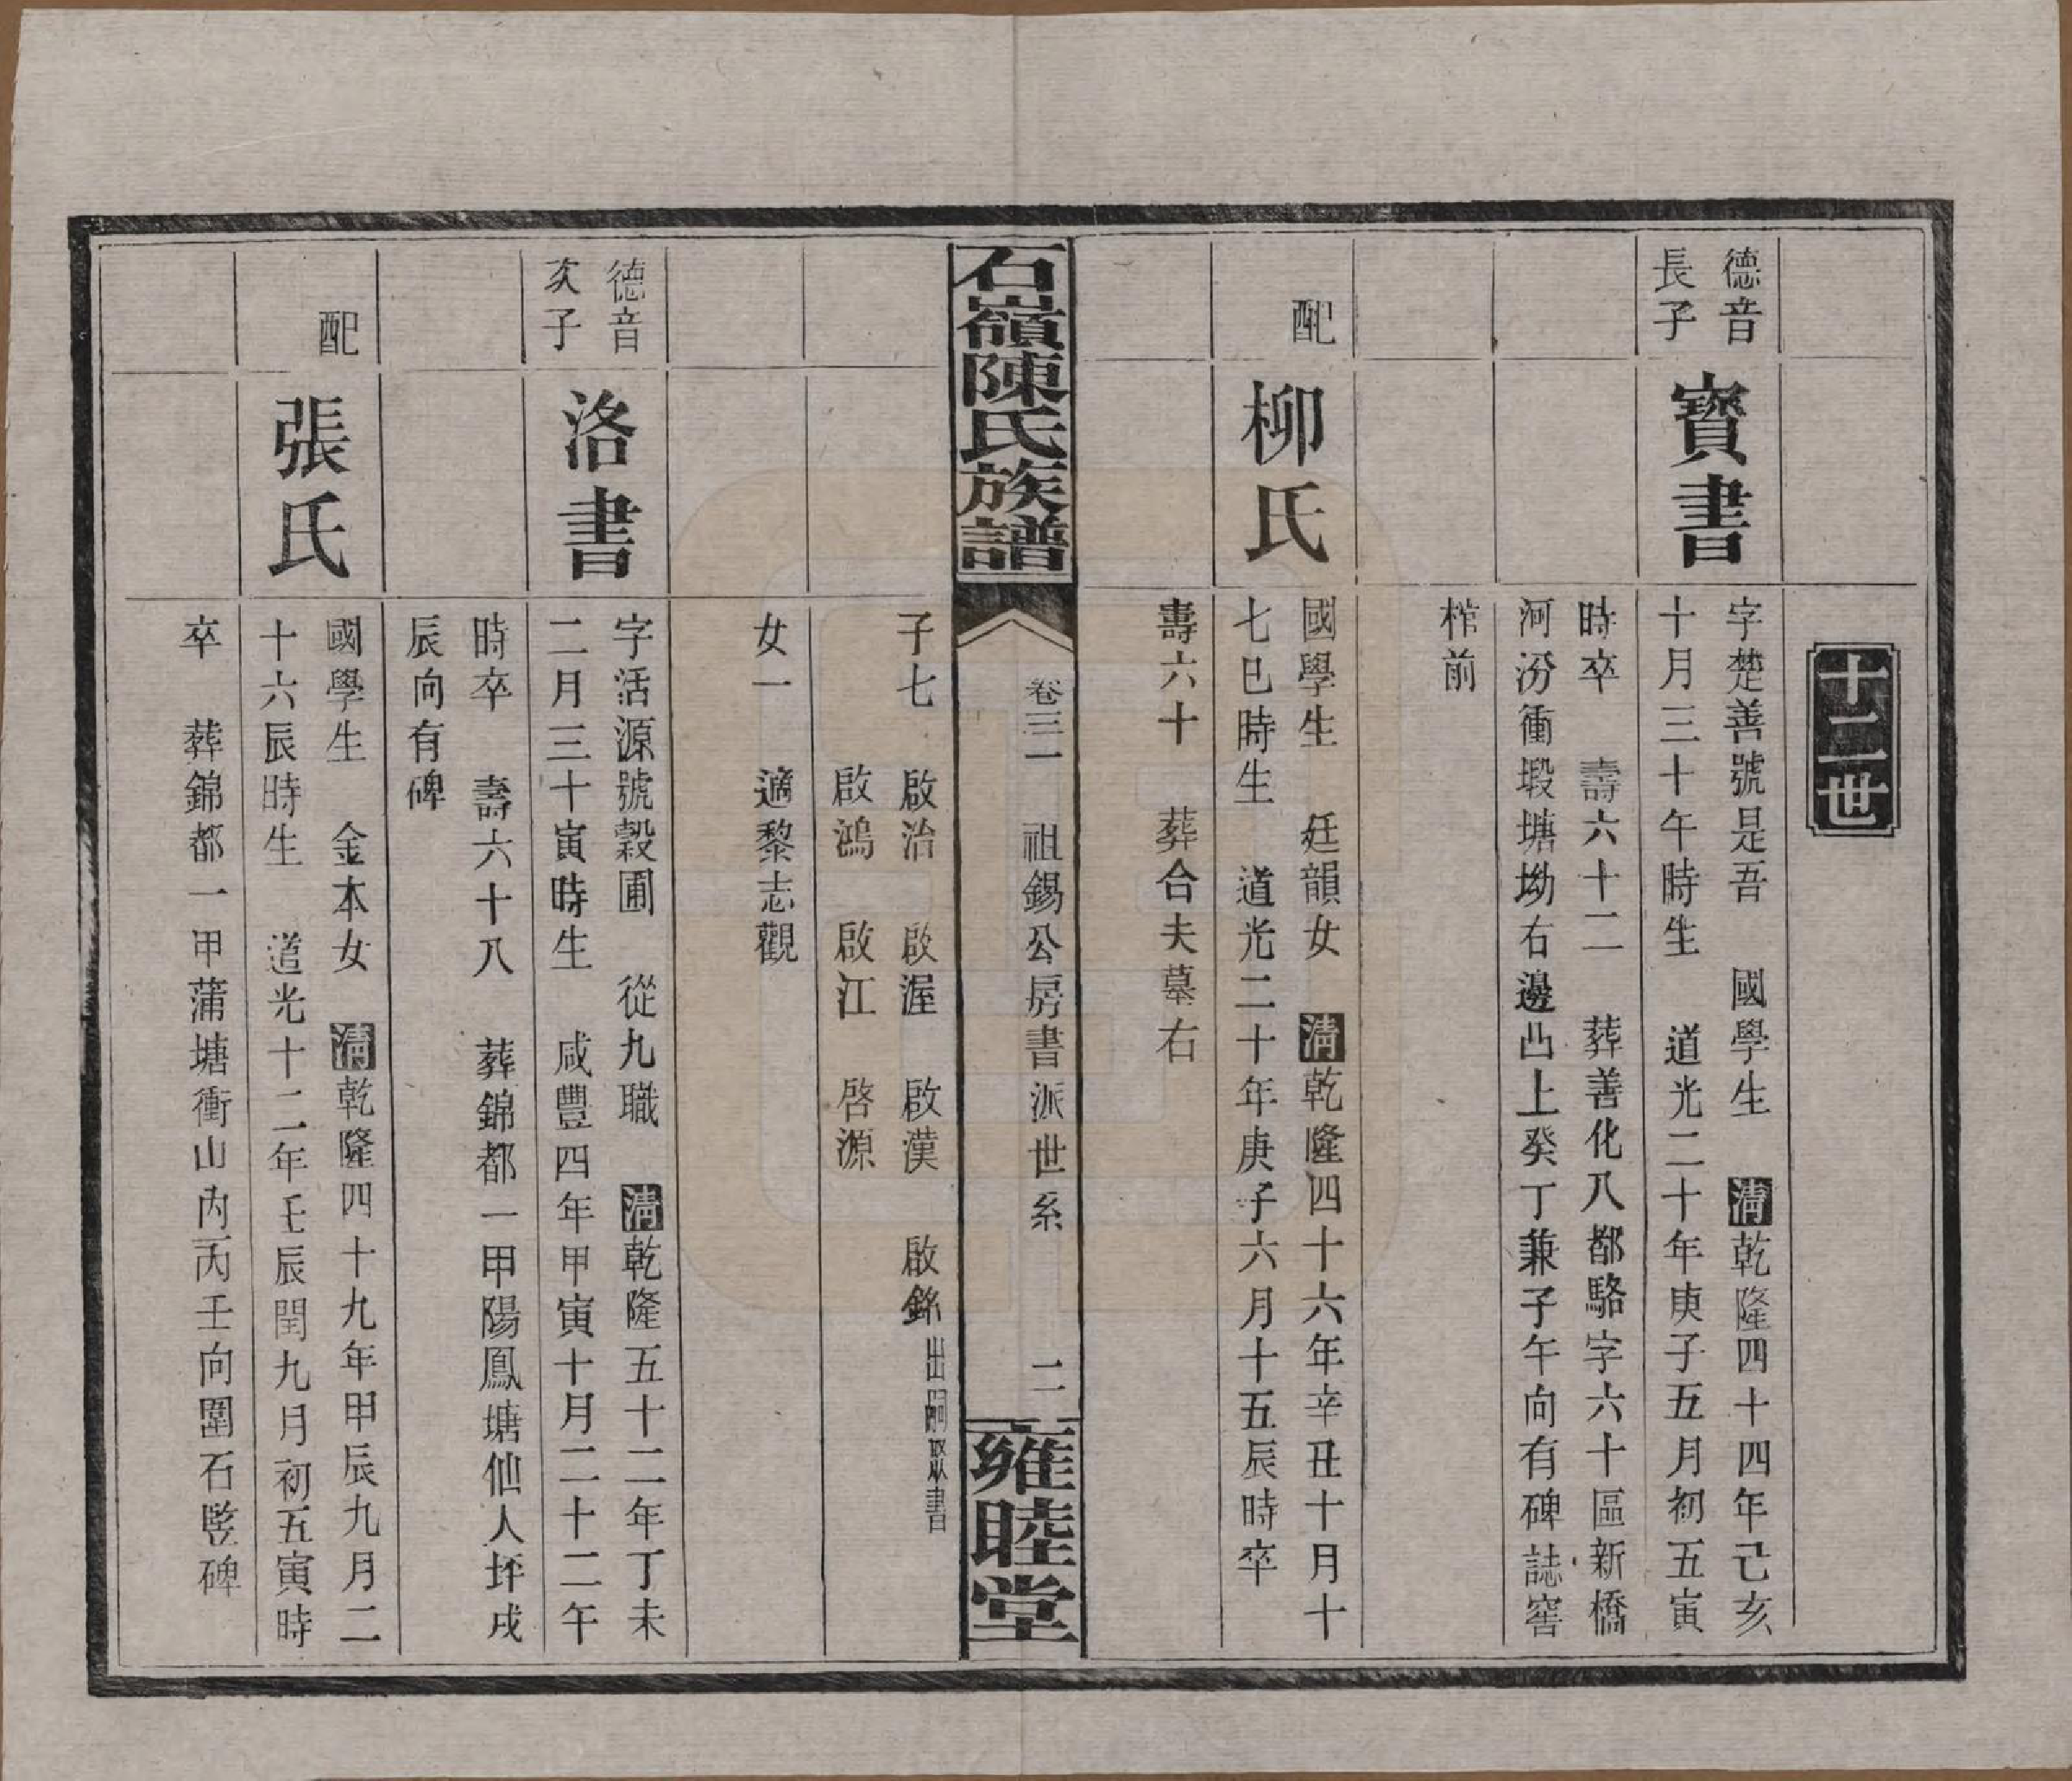 十二世
德音
長子
寶書
字楚善號是吾　國學生　清乾隆四十四年己亥
十月三十午時生　道光二十年庚子五月初五寅
時卒　壽六十二　葬善化八都駱字六十區新橋
河汾衝塅塘坳右邊凸上癸丁兼子午向有碑誌窖
棺前
配
柳氏
國學生　廷韻女　清乾隆四十六年辛丑十月十
七巳時生　道光二十年庚子六月十五辰時卒
壽六十　葬合夫墓右
石嶺陳氏族譜
卷三一　祖錫公房書派世系　二
雍睦堂
子七　啟治　啟渥　啟漢　啟銘出嗣叢書
啟鴻　啟江　啓源
女一　適黎志觀
德音
次子
洛書
字活源號穀圃　從九職　清乾隆五十二年丁未
二月三十寅時生　咸豐四年甲寅十月二十二午
時卒　壽六十八　葬錦都一甲陽鳳塘仙人坪戌
辰向有碑
配
張氏
國學生　金本女　清乾隆四十九年甲辰九月二
十六辰時生　道光十二年壬辰閏九月初五寅時
卒　葬錦都一甲蒲塘衝山內丙壬向圍石竪碑